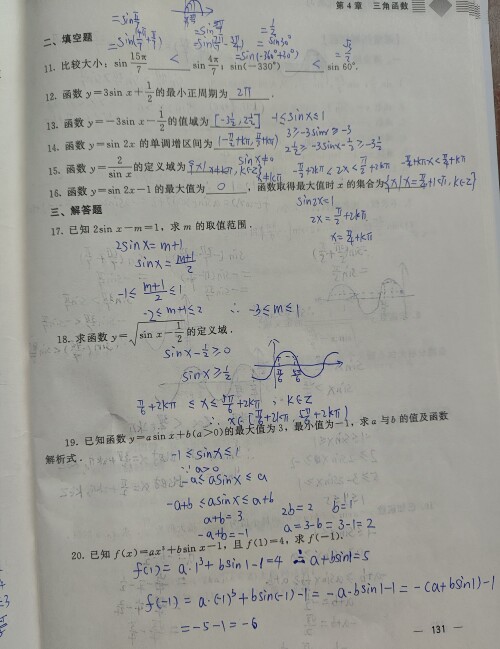 第4章 三角函数
二、填空题
= sin π/7
= sin 3π/7
= 1/2
= sin 30°
= sin(-360°+30°)
11. 比较大小：sin 15π/7 < sin 4π/7；sin(-330°) < sin 60°.
12. 函数 y=3sin x+1/2 的最小正周期为 2π .
13. 函数 y=-3sin x-1/2 的值域为 [-3½, 2½] . -1≤sinx≤1
3≥-3sinx≥-3
14. 函数 y=sin 2x 的单调增区间为 (-π/4+kπ, π/4+kπ) 2½≥-3sinx-½≥-3½
15. 函数 y=2/sin x 的定义域为 {x|x≠kπ, k∈Z} sinx≠0 x≠kπ -π/2+2kπ<2x<π/2+2kπ -π/4+kπ<x<π/4+kπ
16. 函数 y=sin 2x-1 的最大值为 0 ，函数取得最大值时 x 的集合为 {x|x=π/4+kπ, k∈Z}
三、解答题
sin2x=1
2x=π/2+2kπ
x=π/4+kπ
17. 已知 2sin x-m=1，求 m 的取值范围.
2sinx=m+1
sinx=(m+1)/2
-1≤(m+1)/2≤1
-2≤m+1≤2 ∴ -3≤m≤1
18. 求函数 y=√(sin x-1/2) 的定义域.
sinx-½≥0
sinx≥½
π/6 5π/6
π/6+2kπ≤x≤5π/6+2kπ, k∈Z
∴ x∈[π/6+2kπ, 5π/6+2kπ]
19. 已知函数 y=asin x+b(a>0)的最大值为3，最小值为-1，求 a 与 b 的值及函数
解析式.
-1≤sinx≤1
∵a>0
-a≤asinx≤a
-a+b≤asinx≤a+b
a+b=3 2b=2 b=1
-a+b=-1 a=3-b=3-1=2
20. 已知 f(x)=ax³+bsin x-1，且 f(1)=4，求 f(-1).
f(1)=a·1³+bsin1-1=4 ∴ a+bsin1=5
f(-1)=a·(-1)³+bsin(-1)-1=-a-bsin1-1=-(a+bsin1)-1
=-5-1=-6
— 131 —